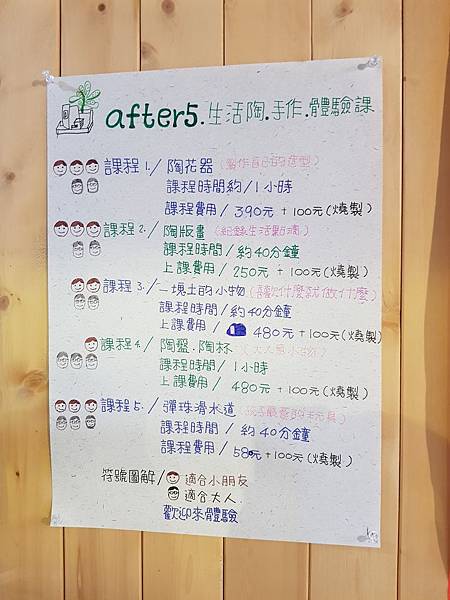 after5.生活陶.手作.體驗課
課程1./陶花器(製作自己的造型)
課程時間約/1小時
課程費用/390元+100元(燒製)
課程2./陶版畫(紀錄生活點滴)
課程時間/約40分鐘
上課費用/250元+100元(燒製)
課程3./一塊土的小物(讓想什麼就做什麼)
課程時間/約40分鐘
上課費用/480元+100元(燒製)
課程4./陶盤.陶杯
課程時間/1小時
上課費用/480元+100元(燒製)
課程5./彈珠滑水道
課程時間/約40分鐘
課程費用/580元+100元(燒製)
符號圖解/適合小朋友
適合大人.
歡迎來體驗